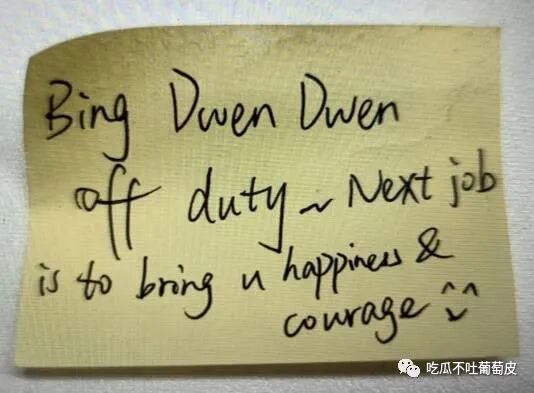 Bing Dwen Dwen
off duty~Next job
is to bring u happiness &
courage ^^
吃瓜不吐葡萄皮